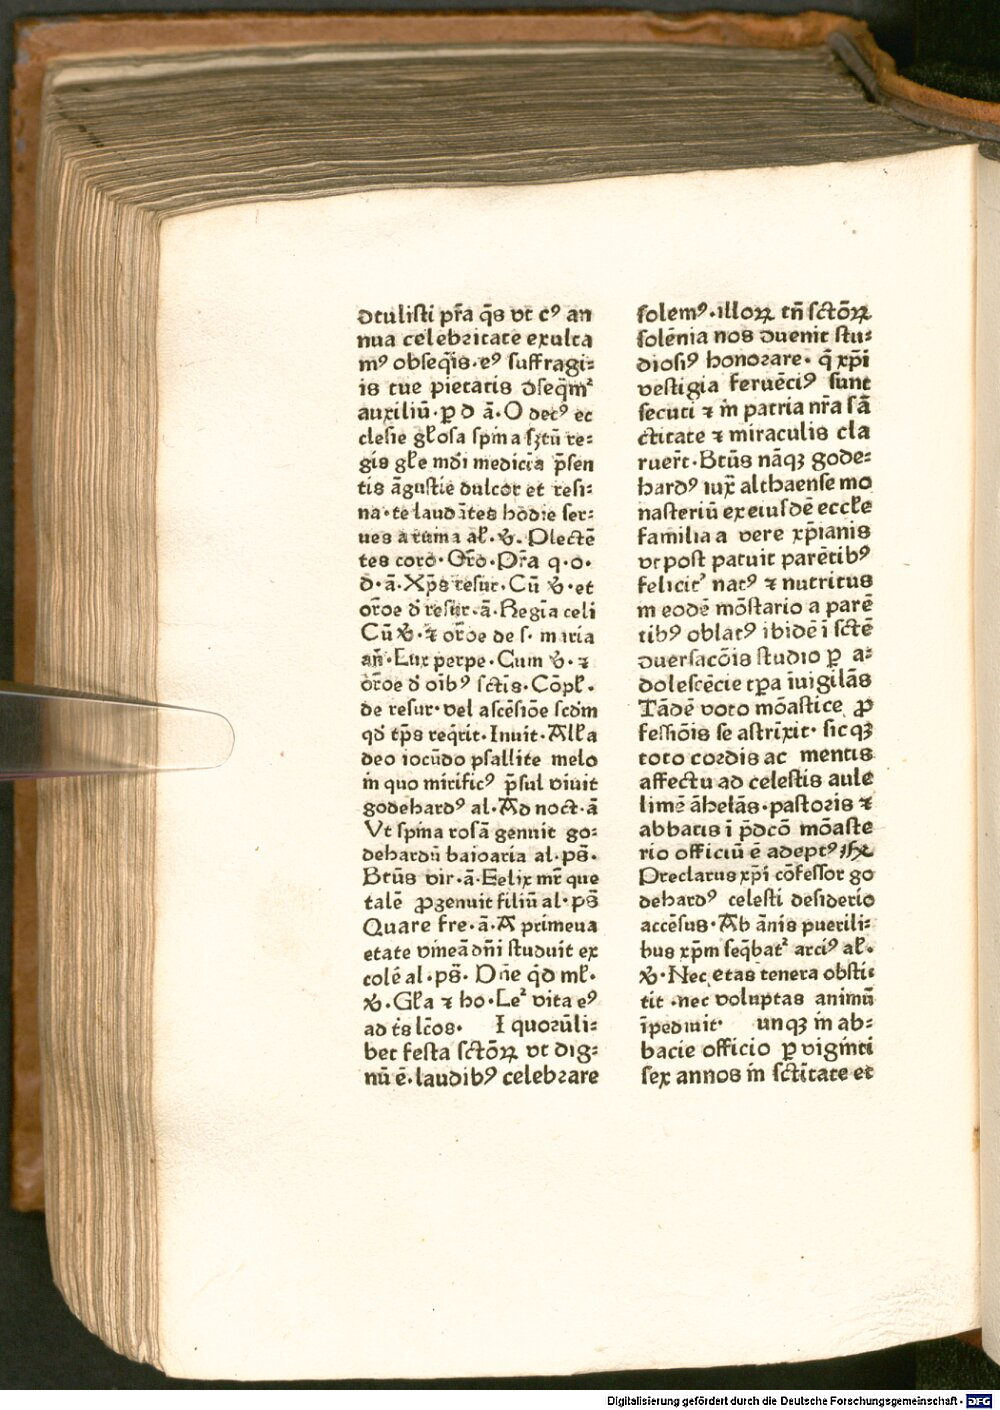 dtulisti pr̄a q̄s vt cꝰ an
nua celebritate exulta
mꝰ obseq̄is·eꝰ suffragi⸗
is tue pietatis ꝺseq̄m²
auxiliū·p d ā·O decꝰ ec
clesie gl̄osa spina sꝫtū re⸗
gis gl̄e mōi medicīa p̄sen
tis āgustie dulcor et resi⸗
na·te laudātes hodie ser⸗
ues a ruina al̄·v̄. Plectē
tes coro·Or̄o·Pr̄a q·o·
d·ā·Xp̄s resur·Cū v̄·et
or̄oe d̄ resur·ā·Regia celi
Cū v̄·⁊ or̄oe de s· maria
an̄·Lux perpe·Cum v̄·⁊
or̄oe d̄ oīb⁹ sctīs·Cōpl̄·
de resur·vel ascēsiōe scd̄m
qd̄ tp̄s req̄rit·Inuit·All̄a
deo iocūdo psallite melo
in quo mirificꝰ p̄sul viuit
godehardꝰ al·Ad noct·ā
Vt spina rosā genuit go⸗
dehardū baioaria al·ps̄·
Bt̄us vir·ā·Felix mr̄ que
talē ꝓgenuit filiū al·ps̄
Quare fre·ā·A primeua
etate vineā dn̄i studuit ex
colē al·ps̄· Dn̄e qd̄ ml̄·
v̄·Gl̄a ⁊ ho·Le² vita eꝰ
ad t̄s lc̄os· I quorūli⸗
bet festa sctōꝝ vt dig⸗
nū ē·laudibꝰ celebrare
solemꝰ·illoꝝ tn̄ sctōꝝ
solēnia nos ꝺuenit stu⸗
diosiꝰ honorare· q̄ xp̄i
vestigia feruēciꝰ sunt
secuti ⁊ in patria nr̄a sā
ctitate ⁊ miraculis cla
ruer̄t·Bt̄us nāqꝫ gode⸗
hardꝰ iux̄ althaense mo
nasteriū ex eiusdē eccl̄e
familia a vere xp̄ianis
vt post patuit parētibꝰ
felicit² natꝰ ⁊ nutritus
in eodē mōstario a parē
tibꝰ oblatꝰ ibidē ī sctē
ꝺuersacōis studio p a⸗
dolescēcie tp̄a īuigilās
Tādē voto mōastice ꝓ
fessiōis se astrīxit· sicqꝫ
toto cordis ac mentis
affectu ad celestis aule
limē āhelās·pastoris ⁊
abbatis ī p̄dcō mōaste
rio officiū ē adeptꝰ
Preclarus xp̄i cōfessor go
dehardꝰ celesti desiderio
accēsus·Ab ānis puerili⸗
bus xp̄m seq̄bat² arciꝰ al̄·
v̄·Nec etas tenera obsti⸗
tit·nec voluptas animū
īpediuit· unqꝫ in ab⸗
bacie officio p viginti
sex annos in sctītate et
Digitalisierung gefördert durch die Deutsche Forschungsgemeinschaft - DFG